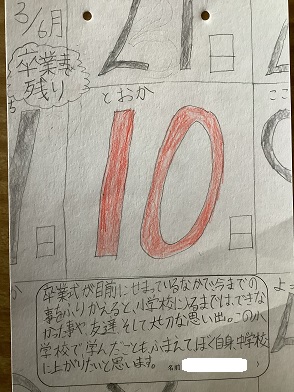 3/6月
21日
卒業まで
残り
とおか
ここ
10日
卒業式が目前にせまっているなかで今までの
事をふりかえると、小学校に入るまでは、できな
かった事や友達そして大切な思い出。この小
学校で学んだことをふまえてぼく自身、中学校
に上がりたいと思います。
名前
よ